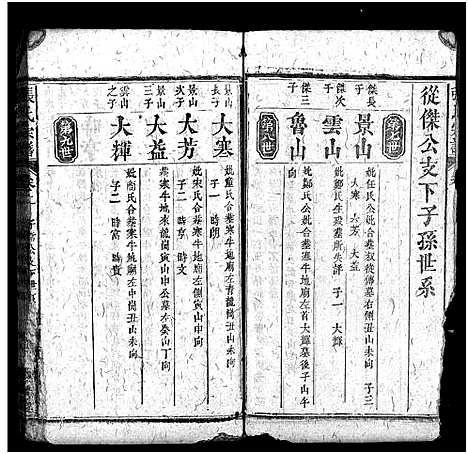 從傑公支下子孫世系
傑長
景山
妣任氏公妣合塟叔從傅墓右側丑山未向 子三
大寒 大芳 大益
傑次
雲山
妣鄭氏生歿塟所失詳 子一 大輝
傑三
魯山
妣鄭氏公妣合塟寒牛地廟左首大輝墓後子山午向
第八世
景山長子
大寒
妣童氏合塟寒牛地廟左青龍崗丑山未向
子一 時朗
景山次子
大芳
妣宋氏合塟寒牛地廟左側寅山申向
子二 時亨 時文
景山三子
大益
塟寒牛地來龍崗寅山申公墓左癸山丁向
雲山之子
大輝
妣商氏合塟寒牛地廟左中崗丑山未向
子二 時富 時貴
第九世
張氏宗譜